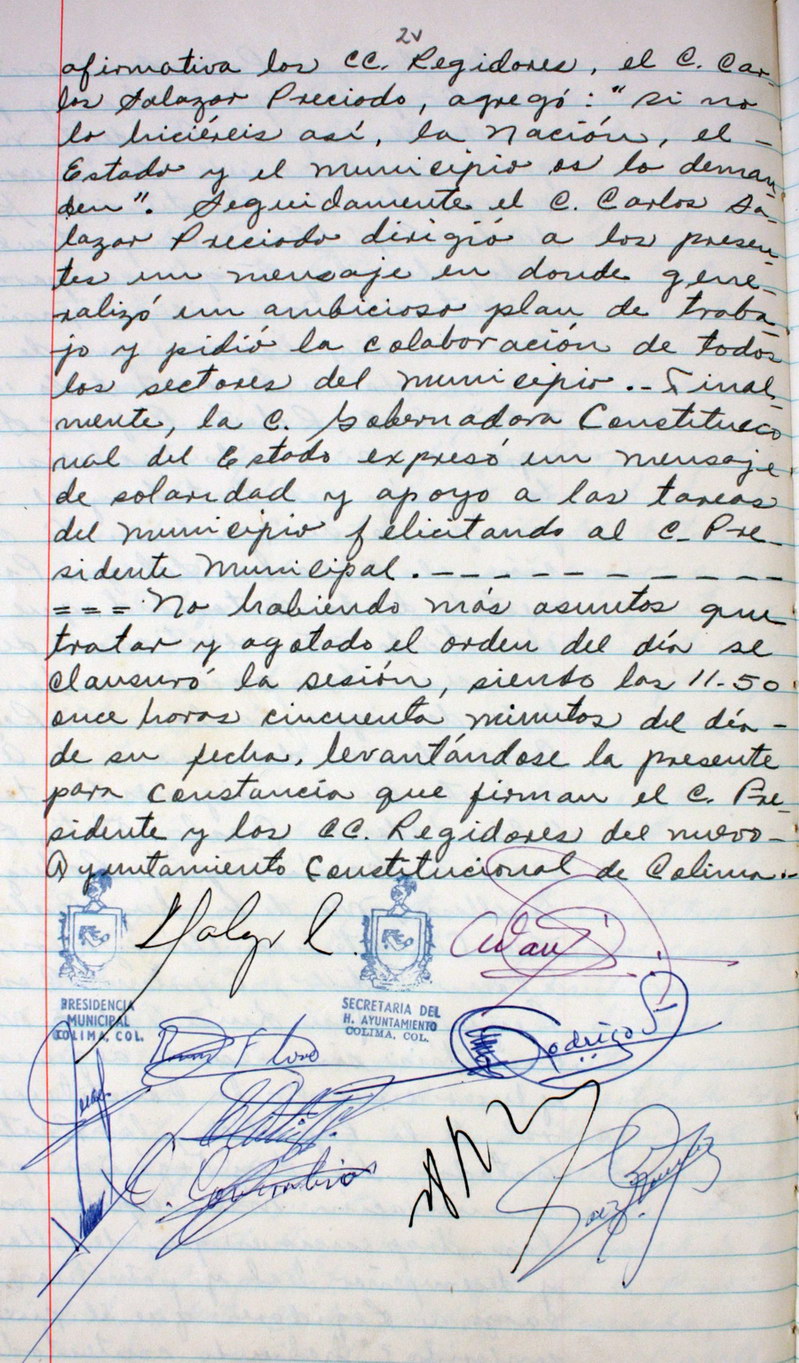 2v
afirmativa los CC. Regidores, el C. Car-
los Salazar Preciado, agregó: "si no
lo hiciéreis así, la Nación, el -
Estado y el municipio os lo deman-
den". Seguidamente el C. Carlos Sa-
lazar Preciado dirigió a los presen-
tes un mensaje en donde gene-
ralizó un ambicioso plan de traba-
jo y pidió la colaboración de todos
los sectores del municipio.-- Final-
mente, la C. Gobernadora Constitucio
nal del Estado expresó un mensaje
de solaridad y apoyo a las tareas
del municipio felicitando al C. Pre-
sidente Municipal. - - - - - - - - - -
= = = No habiendo más asuntos que
tratar y agotado el orden del día se
clausuró la sesión, siendo las 11-50
once horas cincuenta minutos del día -
de su fecha, levantándose la presente
para constancia que firman el C. Pre-
sidente y los CC. Regidores del nuevo -
Ayuntamiento Constitucional de Colima.-
PRESIDENCIA
MUNICIPAL
COLIMA, COL.
SECRETARIA DEL
H. AYUNTAMIENTO
COLIMA, COL.
Rodrigo